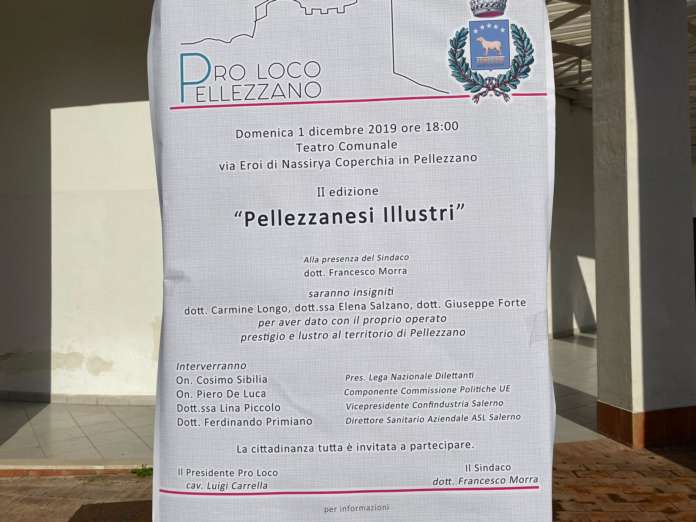 PRO LOCO
PELLEZZANO
Domenica 1 dicembre 2019 ore 18:00
Teatro Comunale
via Eroi di Nassirya Coperchia in Pellezzano
II edizione
“Pellezzanesi Illustri”
Alla presenza del Sindaco
dott. Francesco Morra
saranno insigniti
dott. Carmine Longo, dott.ssa Elena Salzano, dott. Giuseppe Forte
per aver dato con il proprio operato
prestigio e lustro al territorio di Pellezzano
Interverranno
On. Cosimo Sibilia Pres. Lega Nazionale Dilettanti
On. Piero De Luca Componente Commissione Politiche UE
Dott.ssa Lina Piccolo Vicepresidente Confindustria Salerno
Dott. Ferdinando Primiano Direttore Sanitario Aziendale ASL Salerno
La cittadinanza tutta è invitata a partecipare.
Il Presidente Pro Loco Il Sindaco
cav. Luigi Carrella dott. Francesco Morra
per informazioni